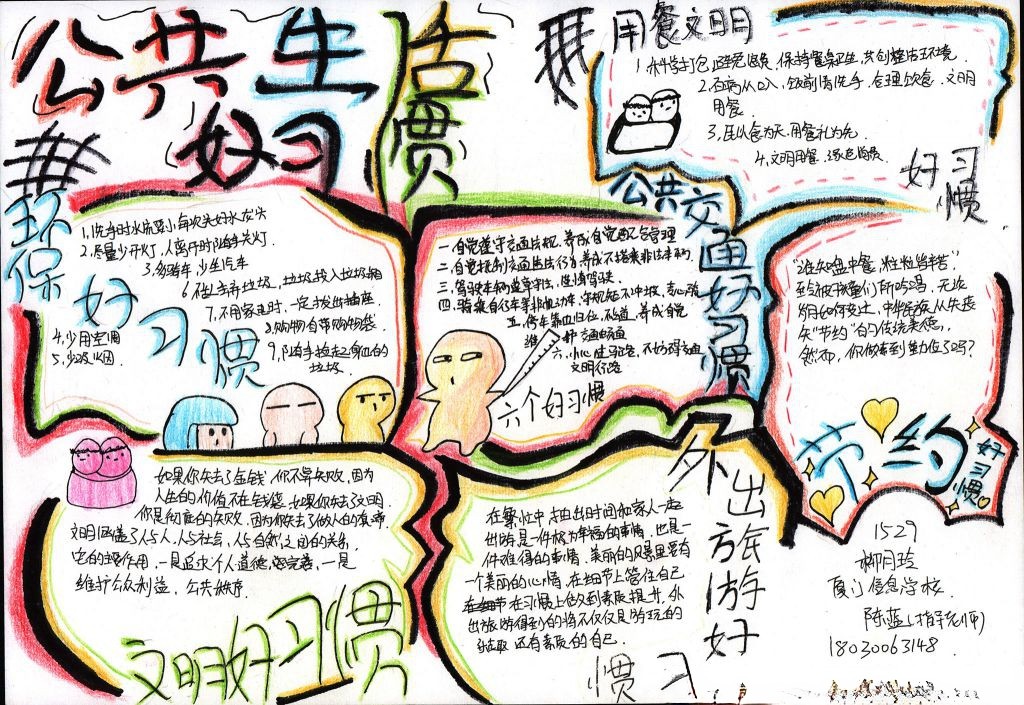 公共生活
好习惯
用餐文明
1.科学打包,避免浪费,保持餐桌卫生,共创整洁环境.
2.百病从口入,饭前请洗手,合理饮食,文明
用餐
3.民以食为天,用餐礼为先.
4.文明用餐
好习
惯
环保
好习惯
1.洗手时水流要小,每次关好水龙头
2.尽量少开灯,人离开时随手关灯.
3.多骑车,少坐汽车
6.不乱丢弃垃圾,垃圾投入垃圾箱
7.不用家电时,一定拔出插座
8.购物自带购物袋
4.少用空调
5.少吸烟
9.随手捡起身边的
垃圾.
公共交通好习惯
一.自觉遵守交通法规,养成自觉配合管理
二.自觉抵制交通违法行为,养成不搭乘非法车辆
三.驾驶车辆遵章守法,谨慎驾驶
五.停车靠边归位,不乱道,养成自觉
六.小心过马路,不妨碍交通
文明行路
六个好习惯
"谁知盘中餐,粒粒皆辛苦"
至今被孩童们所吟唱.无论
岁月如何变迁,中华民族从失丧
失"节约"的传统美德,
然而,你做到是勤俭了吗?
节约
好习惯
如果你失去了金钱,你不算失败,因为
人生的价值不在钱袋,如果你失去文明
你是彻底的失败,因为你失去了做人的真谛
文明涵盖了人与人,人与社会,人与自然之间的关系,
它的主要作用,一是追求个人道德完善,一是
维护公众利益,公共秩序.
文明好习惯
外出旅游好
习惯
在繁忙中,抽出时间和家人一起
出游是一件极为幸福的事情,也是一
件难得的事情,美丽的风景里要有
一个美丽的心情,在细节上管住自己
在习惯上做到素质提升,外
出旅游得到的将不仅仅是游玩的
乐趣,还有素质的自己.
1529
柳月玲
厦门信息学校
陈蓝(指导老师)
18030063148